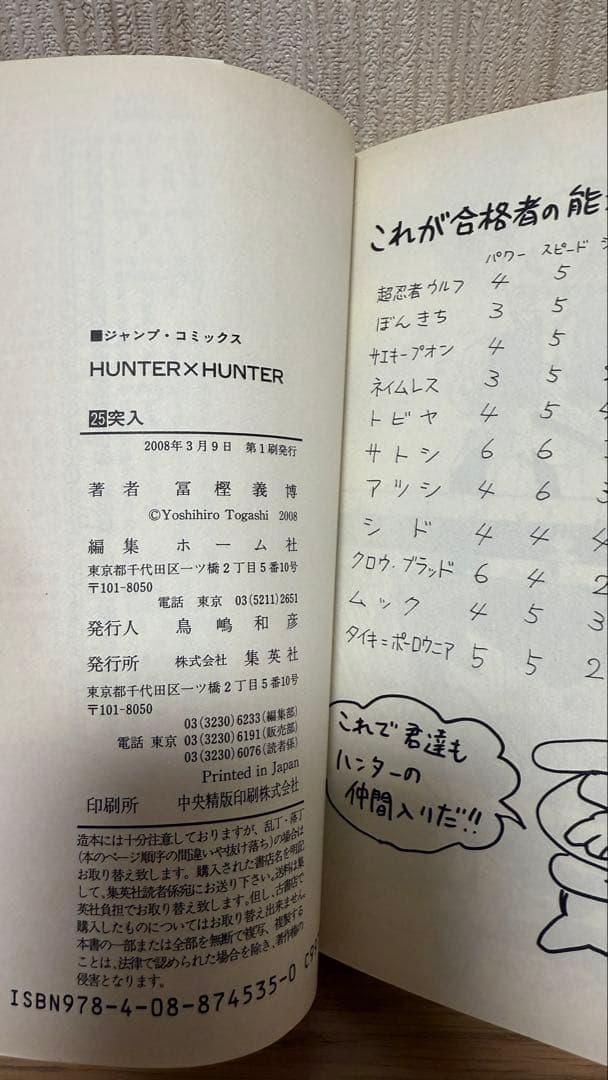 ■ジャンプ・コミックス
HUNTER×HUNTER
25突入
2008年3月9日 第1刷発行
著者 冨樫義博
©Yoshihiro Togashi 2008
編集 ホーム社
東京都千代田区一ツ橋2丁目5番10号
〒101-8050
電話 東京 03(5211)2651
発行人 鳥嶋和彦
発行所 株式会社 集英社
東京都千代田区一ツ橋2丁目5番10号
〒101-8050
03(3230)6233(編集部)
電話 東京 03(3230)6191(販売部)
03(3230)6076(読者係)
Printed in Japan
印刷所 中央精版印刷株式会社
造本には十分注意しておりますが、乱丁・落丁
(本のページ順序の間違いや抜け落ち)の場合は
お取り替え致します。購入された書店名を明記
して、集英社読者係宛にお送り下さい。送料は集
英社負担でお取り替え致します。但し、古書店で
購入したものについてはお取り替え出来ません。
本書の一部または全部を無断で複写、複製する
ことは、法律で認められた場合を除き、著作権の
侵害となります。
ISBN978-4-08-874535-0
これが合格者の能
パワー スピード
超忍者ウルフ 4 5
ぼんきち 3 5
サエキープオン 4 5
ネイムレス 3 5
トビヤ 4 5 4
サトシ 6 6
アツシ 4 6 3
シド 4 4 4
クロウ・ブラッド 6 4 2
ムック 4 5 3
タイキ=ポーロウニア 5 5 2
これで君達も
ハンターの
仲間入りだ!!